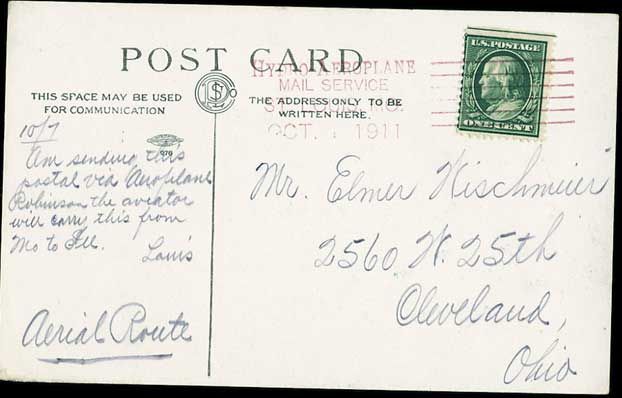 POST CARD
THIS SPACE MAY BE USED
FOR COMMUNICATION
THE ADDRESS ONLY TO BE
WRITTEN HERE.
HYDRO-AEROPLANE
MAIL SERVICE
ST. LOUIS, MO.
OCT. 1911
U.S. POSTAGE
ONE CENT
10/7
Am sending this
postal via Aeroplane
Robinson the aviator
will carry this from
Mo to Ill.
Louis
Aerial Route
Mr. Elmer Wischmeier
2560 W. 25th
Cleveland,
Ohio